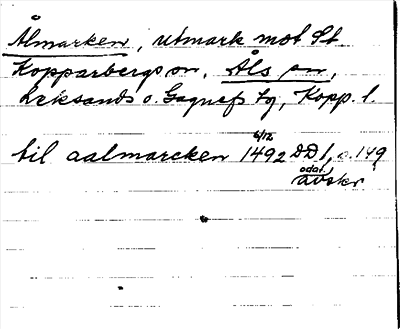 Ålmarken, utmark mot St.
Kopparbergs sn, Åls sn,
Leksands o. Gagnefs tg, Kopp. l.
6/12
til aalmarcken 1492 DD 1, s. 149
odat.
avskr.